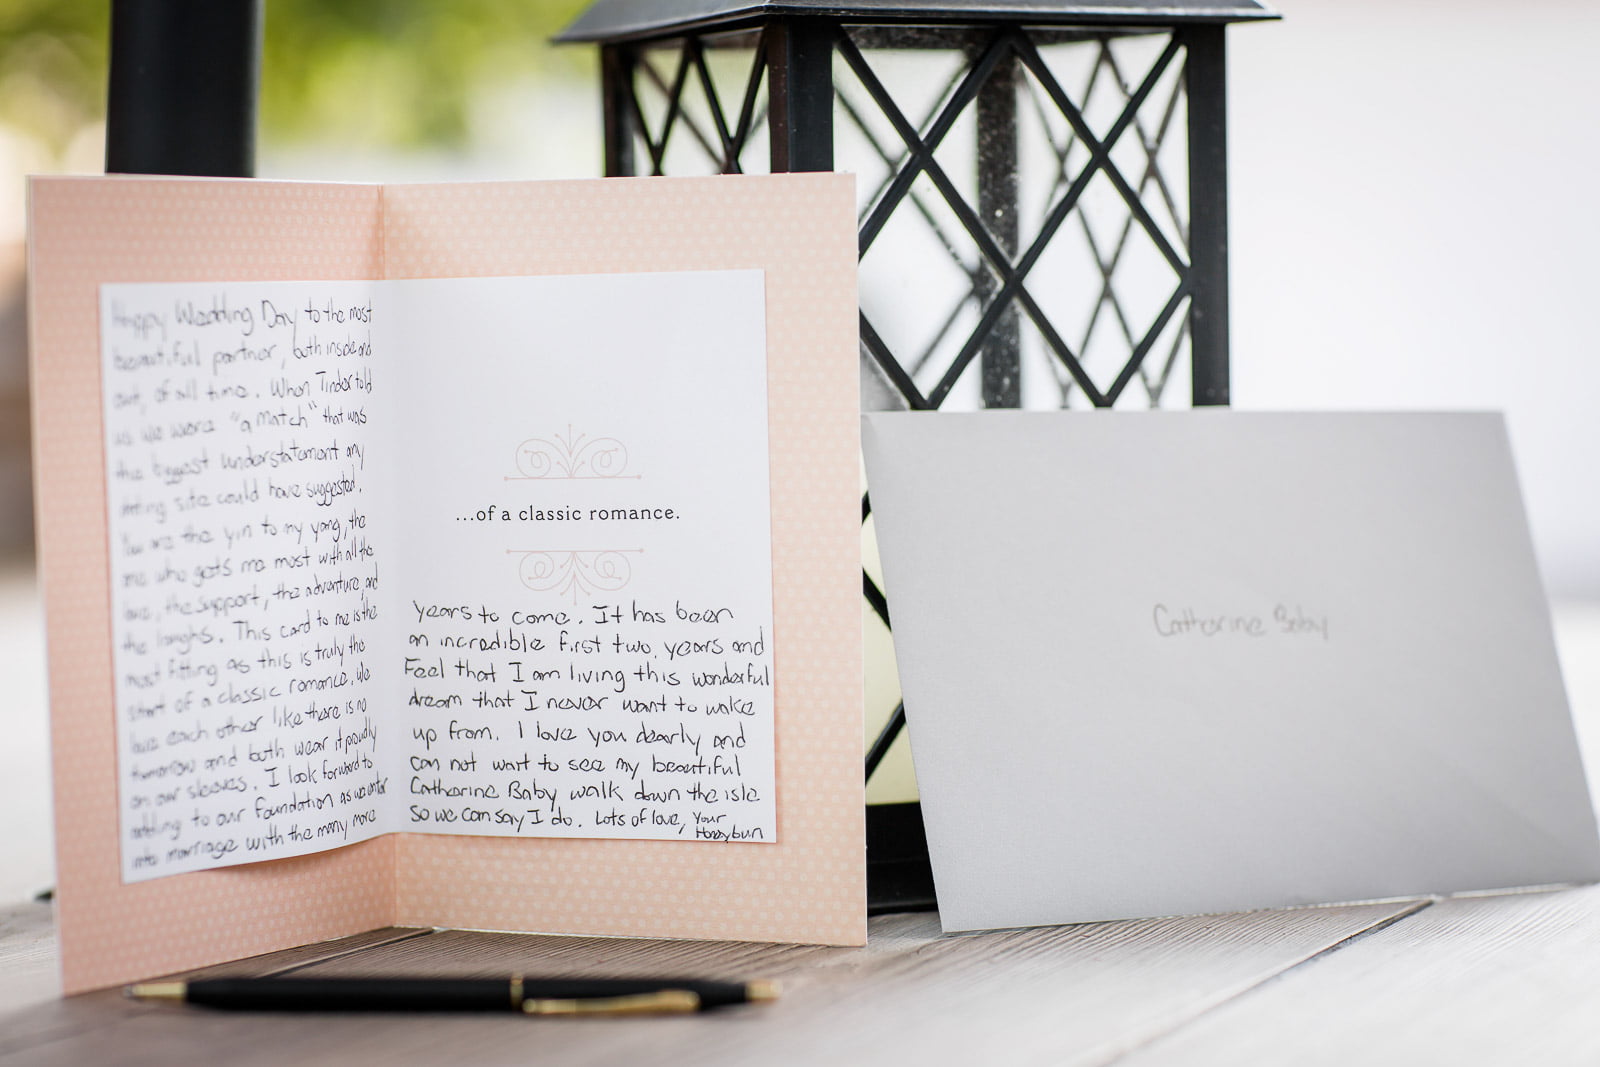 Happy Wedding Day to the most
beautiful partner, both inside and
out, of all time. When Tinder told
us we were "a match" that was
the biggest understatement any
dating site could have suggested.
You are the yin to my yang, the
one who gets me most with all the
love, the support, the adventure, and
the laughs. This card to me is the
most fitting as this is truly the
start of a classic romance. We
love each other like there is no
tomorrow and both wear it proudly
on our sleeves. I look forward to
adding to our foundation as we enter
into marriage with the many more
...of a classic romance.
years to come. It has been
an incredible first two, years and
Feel that I am living this wonderful
dream that I never want to wake
up from. I love you dearly and
can not wait to see my beautiful
Catherine Baby walk down the isle
so we can say I do. Lots of love, Your
Honeybun
Catherine Baby